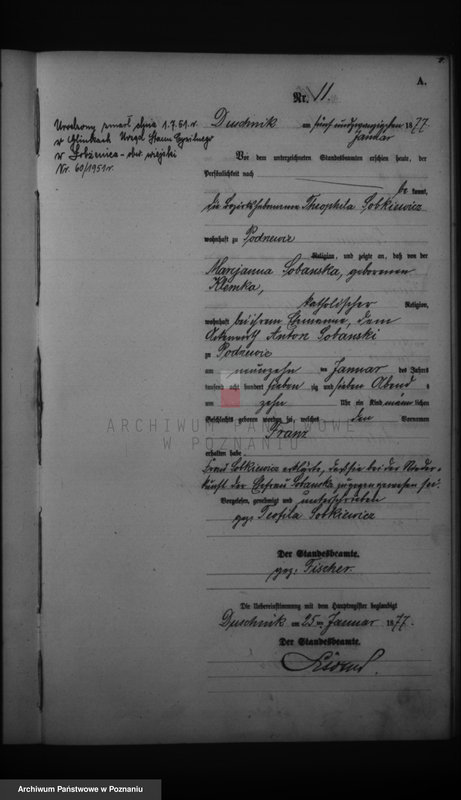 A.
Nr. 11
Urodzony zmarł dnia 1.7.51 r.
w Glinkach Urząd Stanu Cywilnego
w Łobżenica - obw. wiejski
Nr. 60/1951 r.
Duschnik am fünf und zwanzigsten
Januar 1877
Vor dem unterzeichneten Standesbeamten erschien heute, der
Persönlichkeit nach
be kannt,
die Bezirkshebamme Theophila Sobkiewicz
wohnhaft zu Podrzewie
Religion, und zeigte an, daß von der
Marijanna Sobanska, geborenen
Klemka,
katholischer Religion,
wohnhaft bei ihrem Ehemanne, dem
Anton Sobanski
zu Podrzewie
am neunzehn ten Januar des Jahres
tausend acht hundert sieben zig und sieben Abend s
um zehn Uhr ein Kind männ lichen
Geschlechts geboren worden sei, welches den Vornamen
Franz
erhalten habe
Frau Sobkiewicz erklärte, daß sie bei der Nieder-
kunft der Ehefrau Sobanska zugegen gewesen sei.
Vorgelesen, genehmigt und unterschrieben
gez. Teofila Sobkiewicz
Der Standesbeamte.
gez. Fischer.
Die Uebereinstimmung mit dem Hauptregister beglaubigt
Duschnik am 25 ten Januar 1877.
Der Standesbeamte.
ARCHIWUM PAŃSTWOWE
W POZNANIU
Archiwum Państwowe w Poznaniu